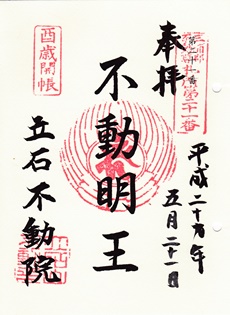 奉拝
第二十一番
平成二十九年
五月二十一日
不動明王
酉歳開帳
立石不動院